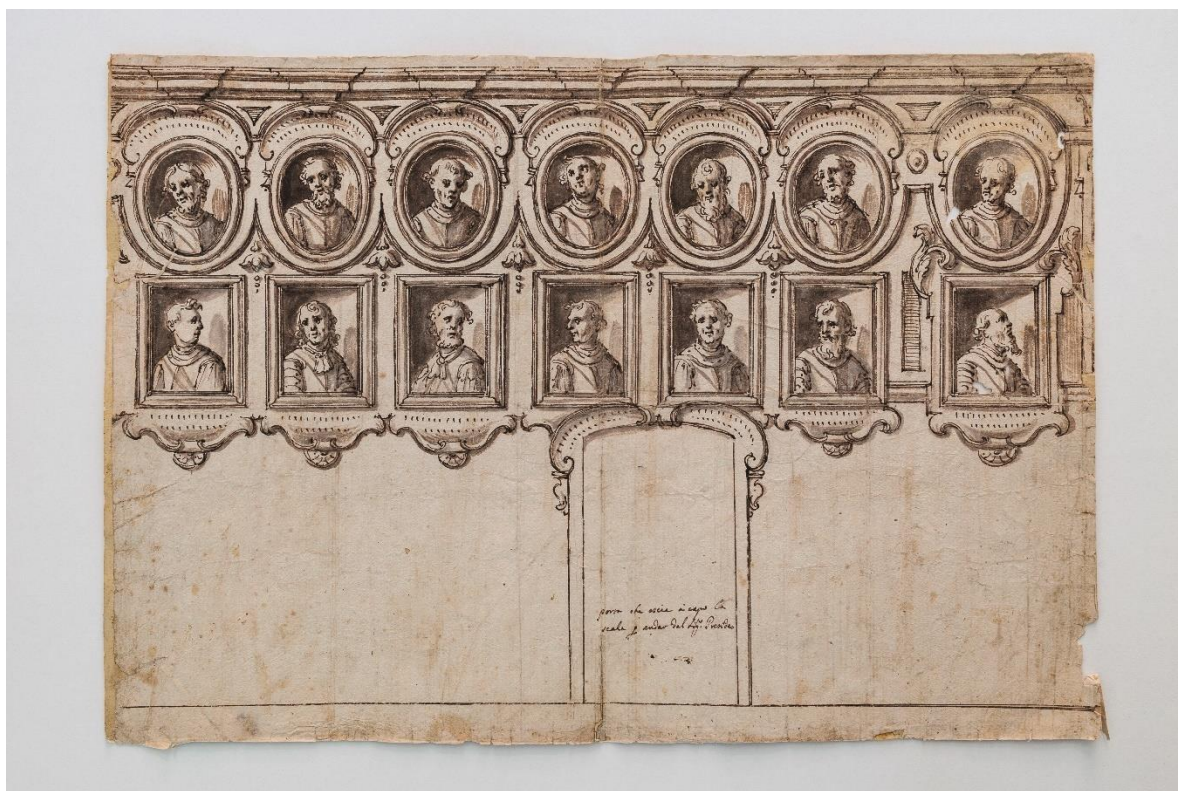 porta che escie in capo la
scala p andar dal Sigr. Preside